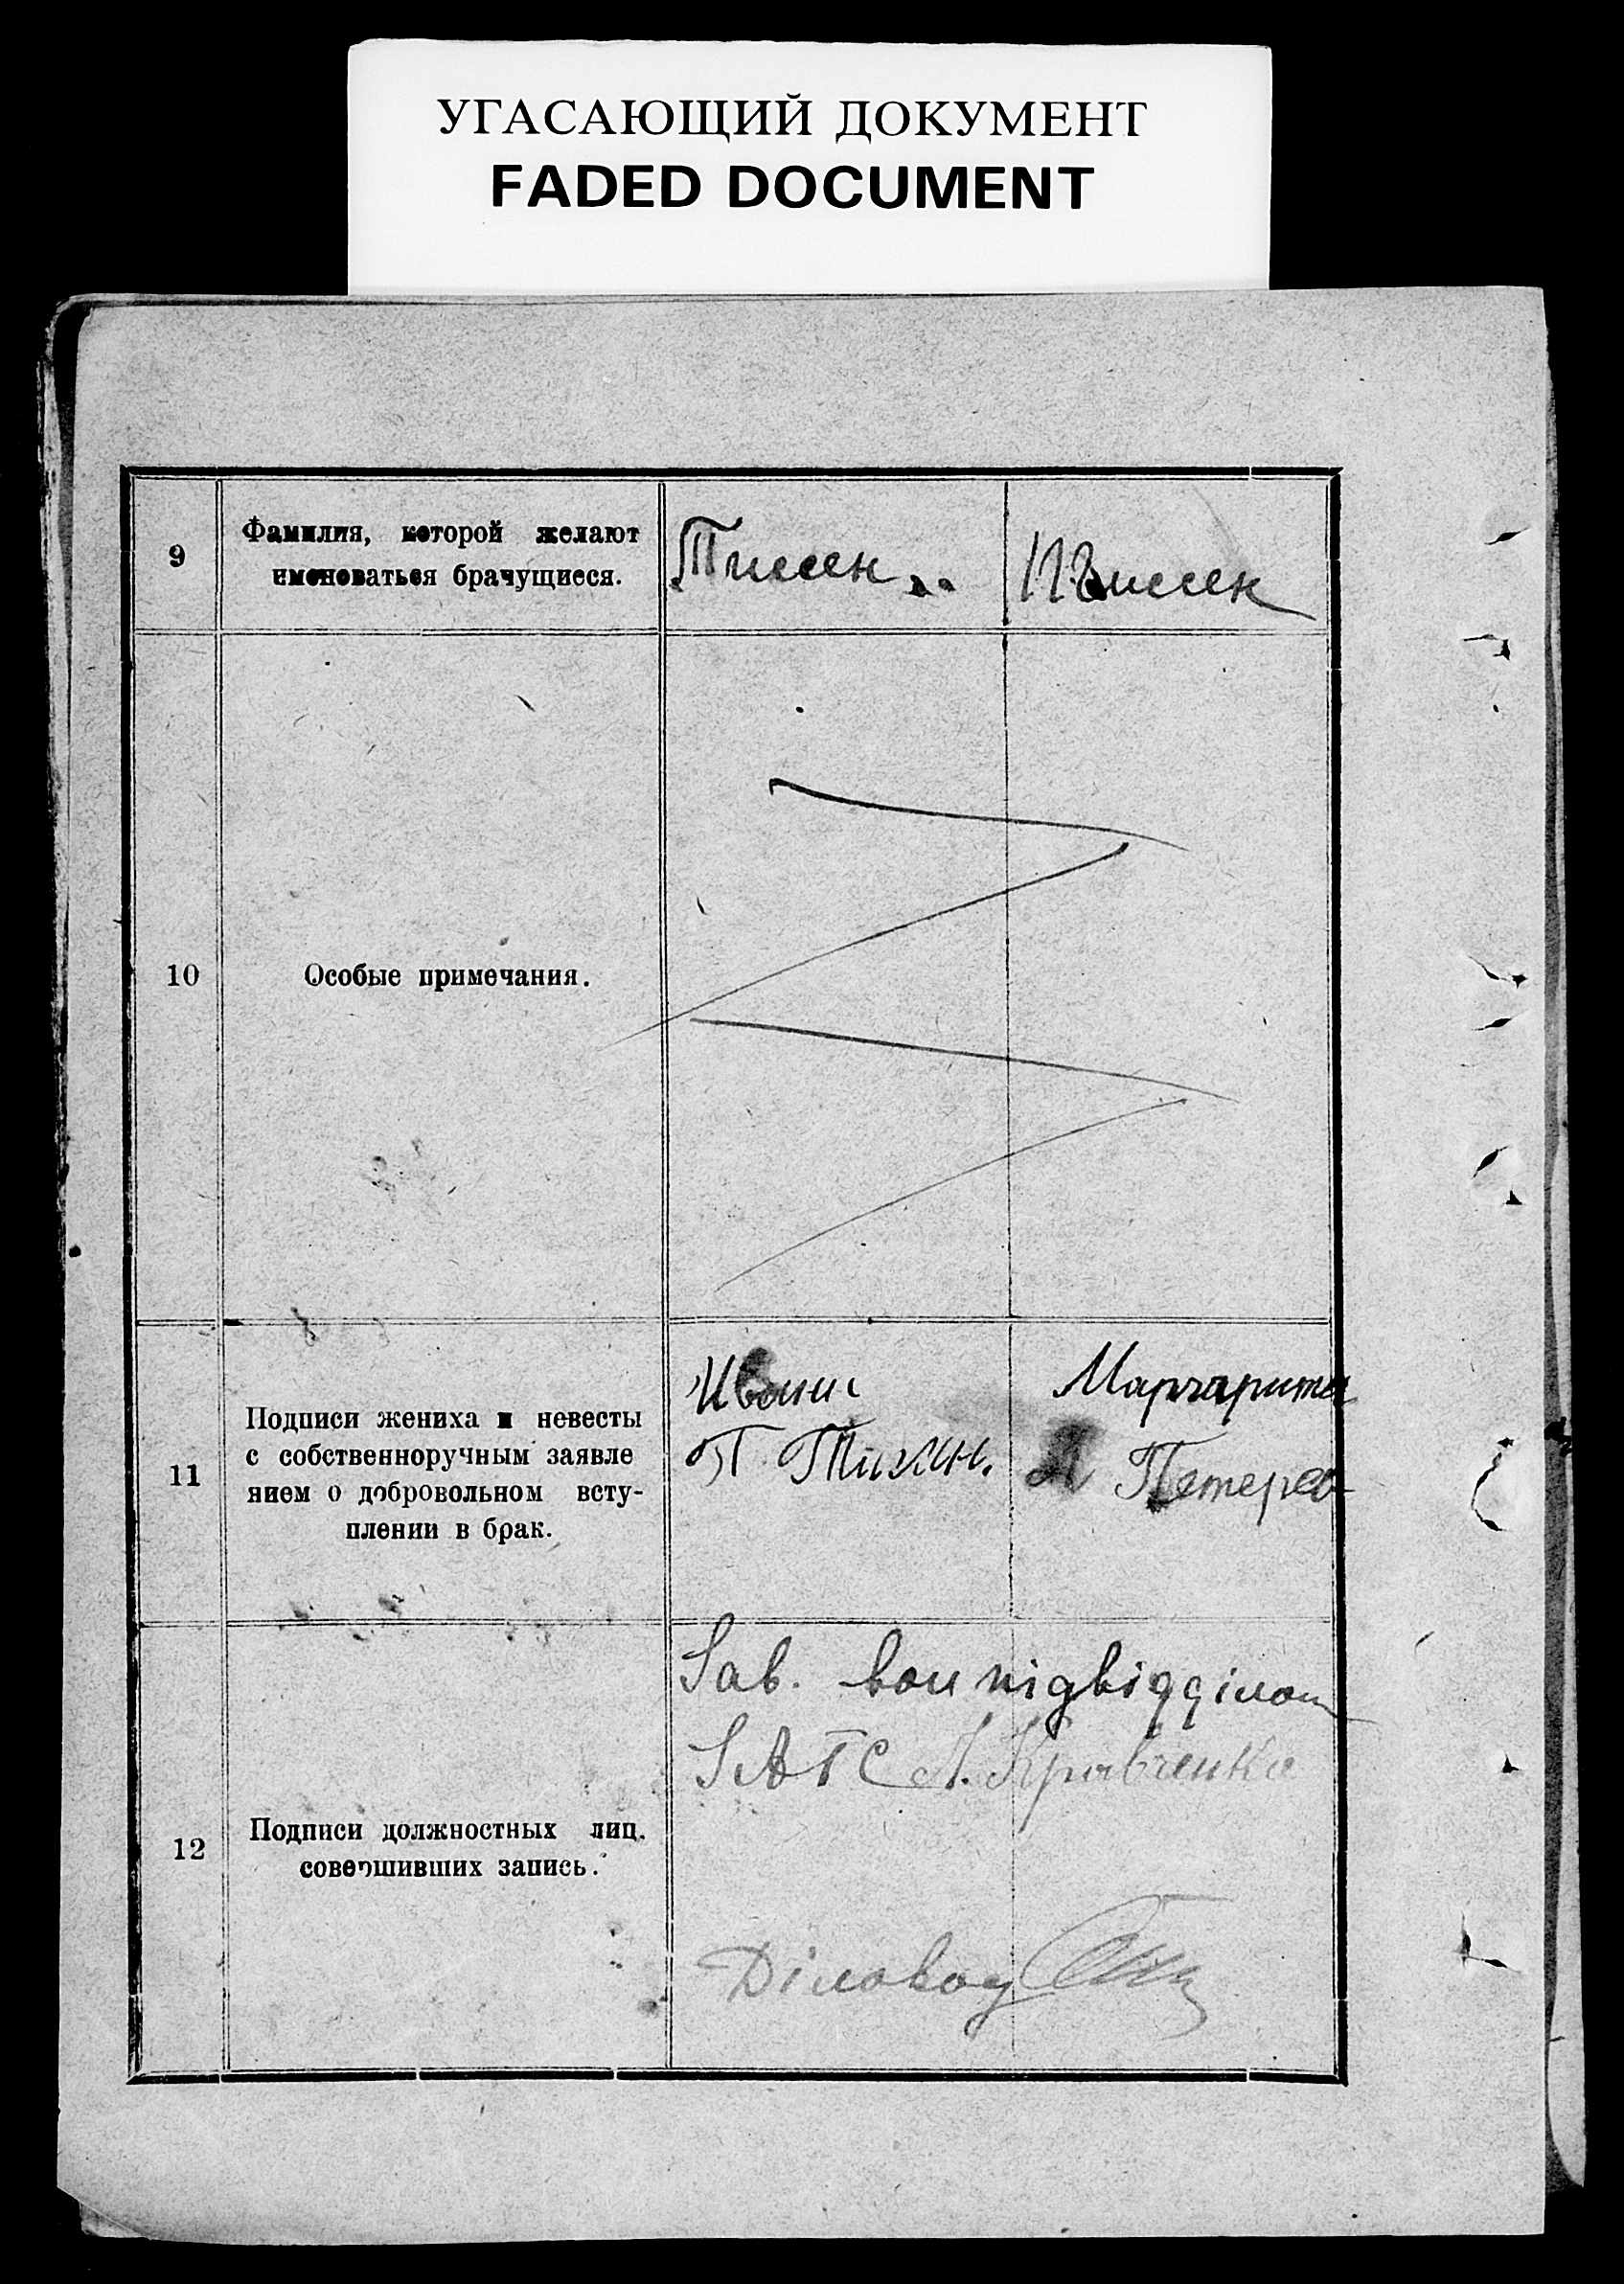 УГАСАЮЩИЙ ДОКУМЕНТ
FADED DOCUMENT
9
Фамилия, которой желают
именоваться брачущиеся.
Тиссен
Тиссен
10
Особые примечания.
11
Подписи жениха и невесты
с собственноручным заявле
нием о добровольном всту-
плении в брак.
Иван
П Тисен.
Маргарита
Я Петерс
12
Подписи должностных лиц.
совершивших запись.
Зав. вол підвідділом
ЗАГС Кравченко
Діловод